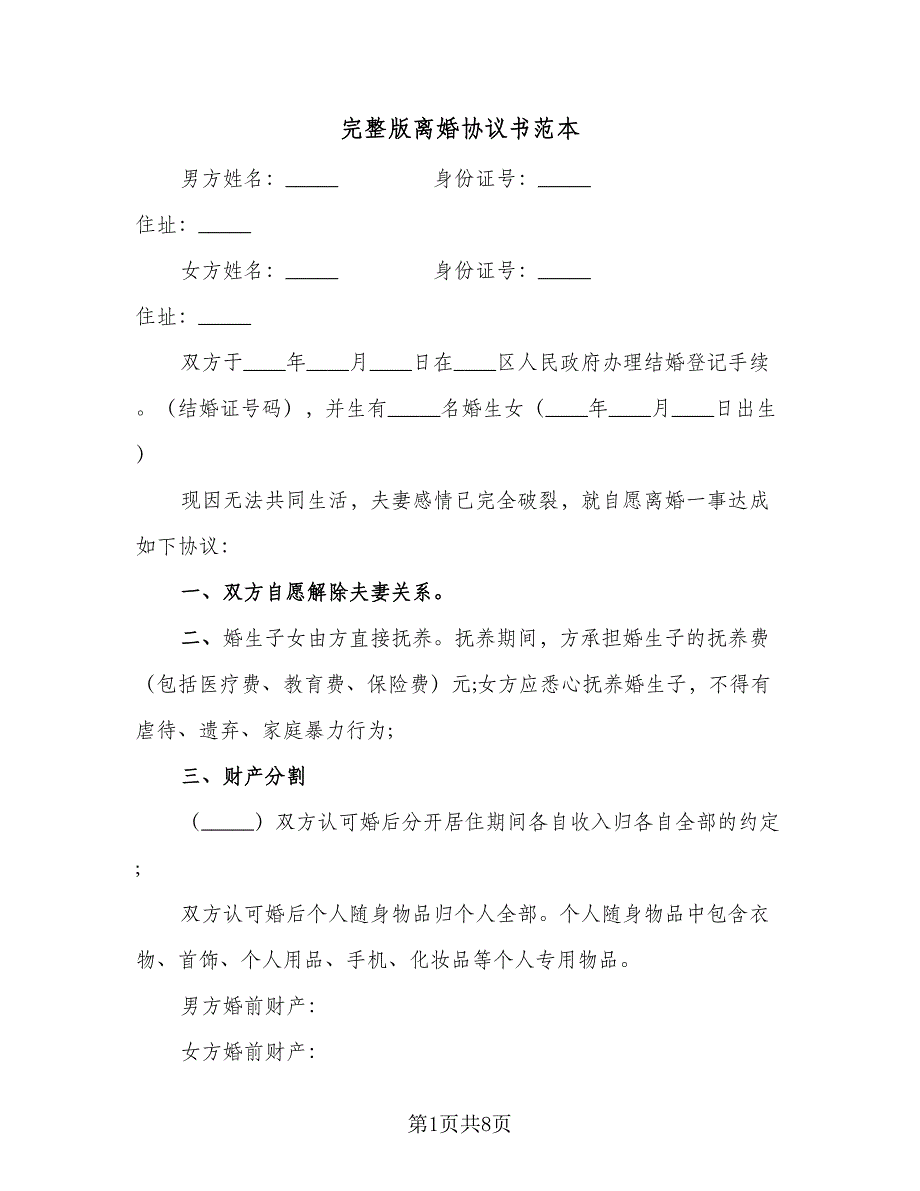 完整版离婚协议书范本
男方姓名：_____ 身份证号：_____
住址：_____
女方姓名：_____ 身份证号：_____
住址：_____
双方于____年____月____日在____区人民政府办理结婚登记手续
。（结婚证号码），并生有_____名婚生女（____年____月____日出生
）
现因无法共同生活，夫妻感情已完全破裂，就自愿离婚一事达成
如下协议：
一、双方自愿解除夫妻关系。
二、婚生子女由方直接抚养。抚养期间，方承担婚生子的抚养费
（包括医疗费、教育费、保险费）元;女方应悉心抚养婚生子，不得有
虐待、遗弃、家庭暴力行为;
三、财产分割
（_____）双方认可婚后分开居住期间各自收入归各自全部的约定
;
双方认可婚后个人随身物品归个人全部。个人随身物品中包含衣
物、首饰、个人用品、手机、化妆品等个人专用物品。
男方婚前财产：
女方婚前财产：
第1页共8页